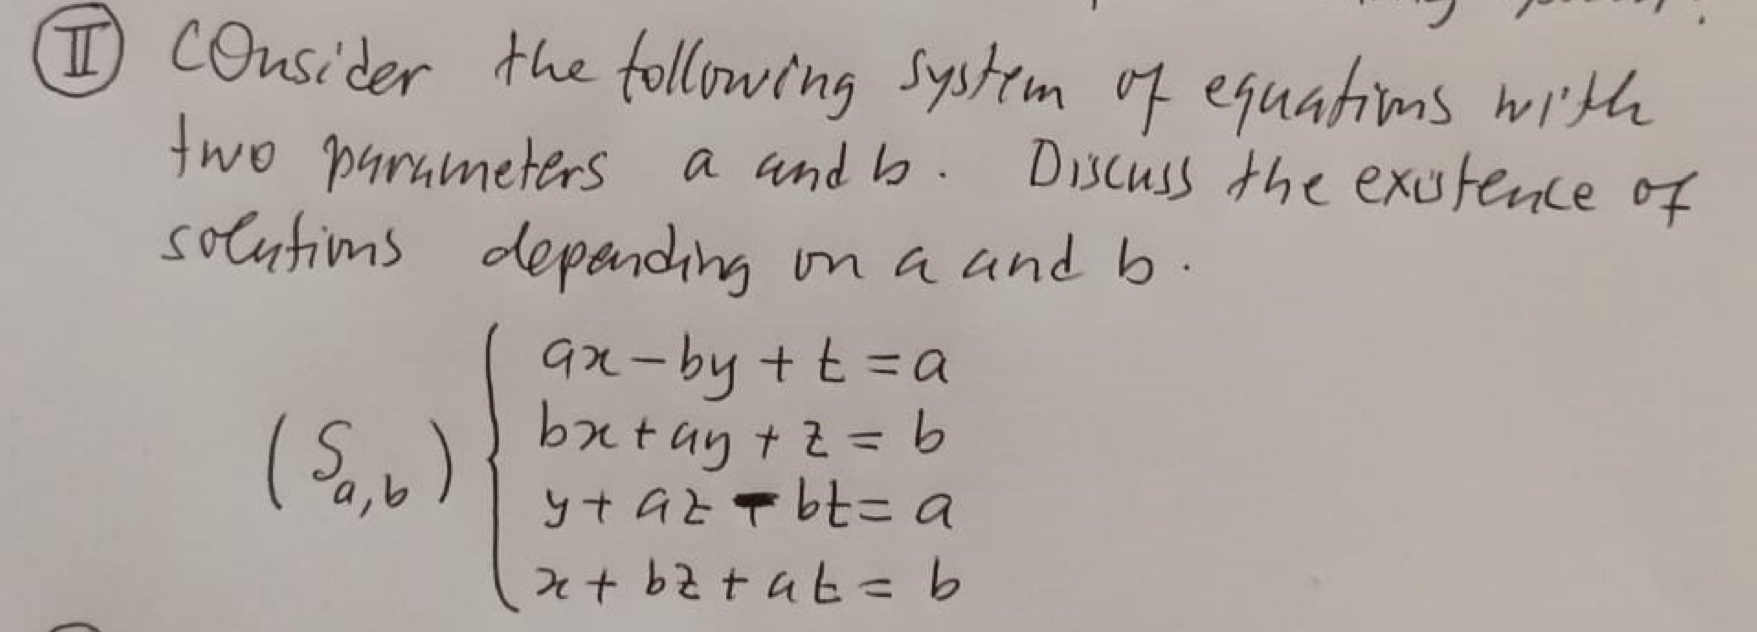 II Consider the following system of equations with
two parameters a and b. Discuss the existence of
solutions depending on a and b.
ax - by + t = a
bx + ay + z = b
(S_{a,b})
y + az - bt = a
x + bz + at = b